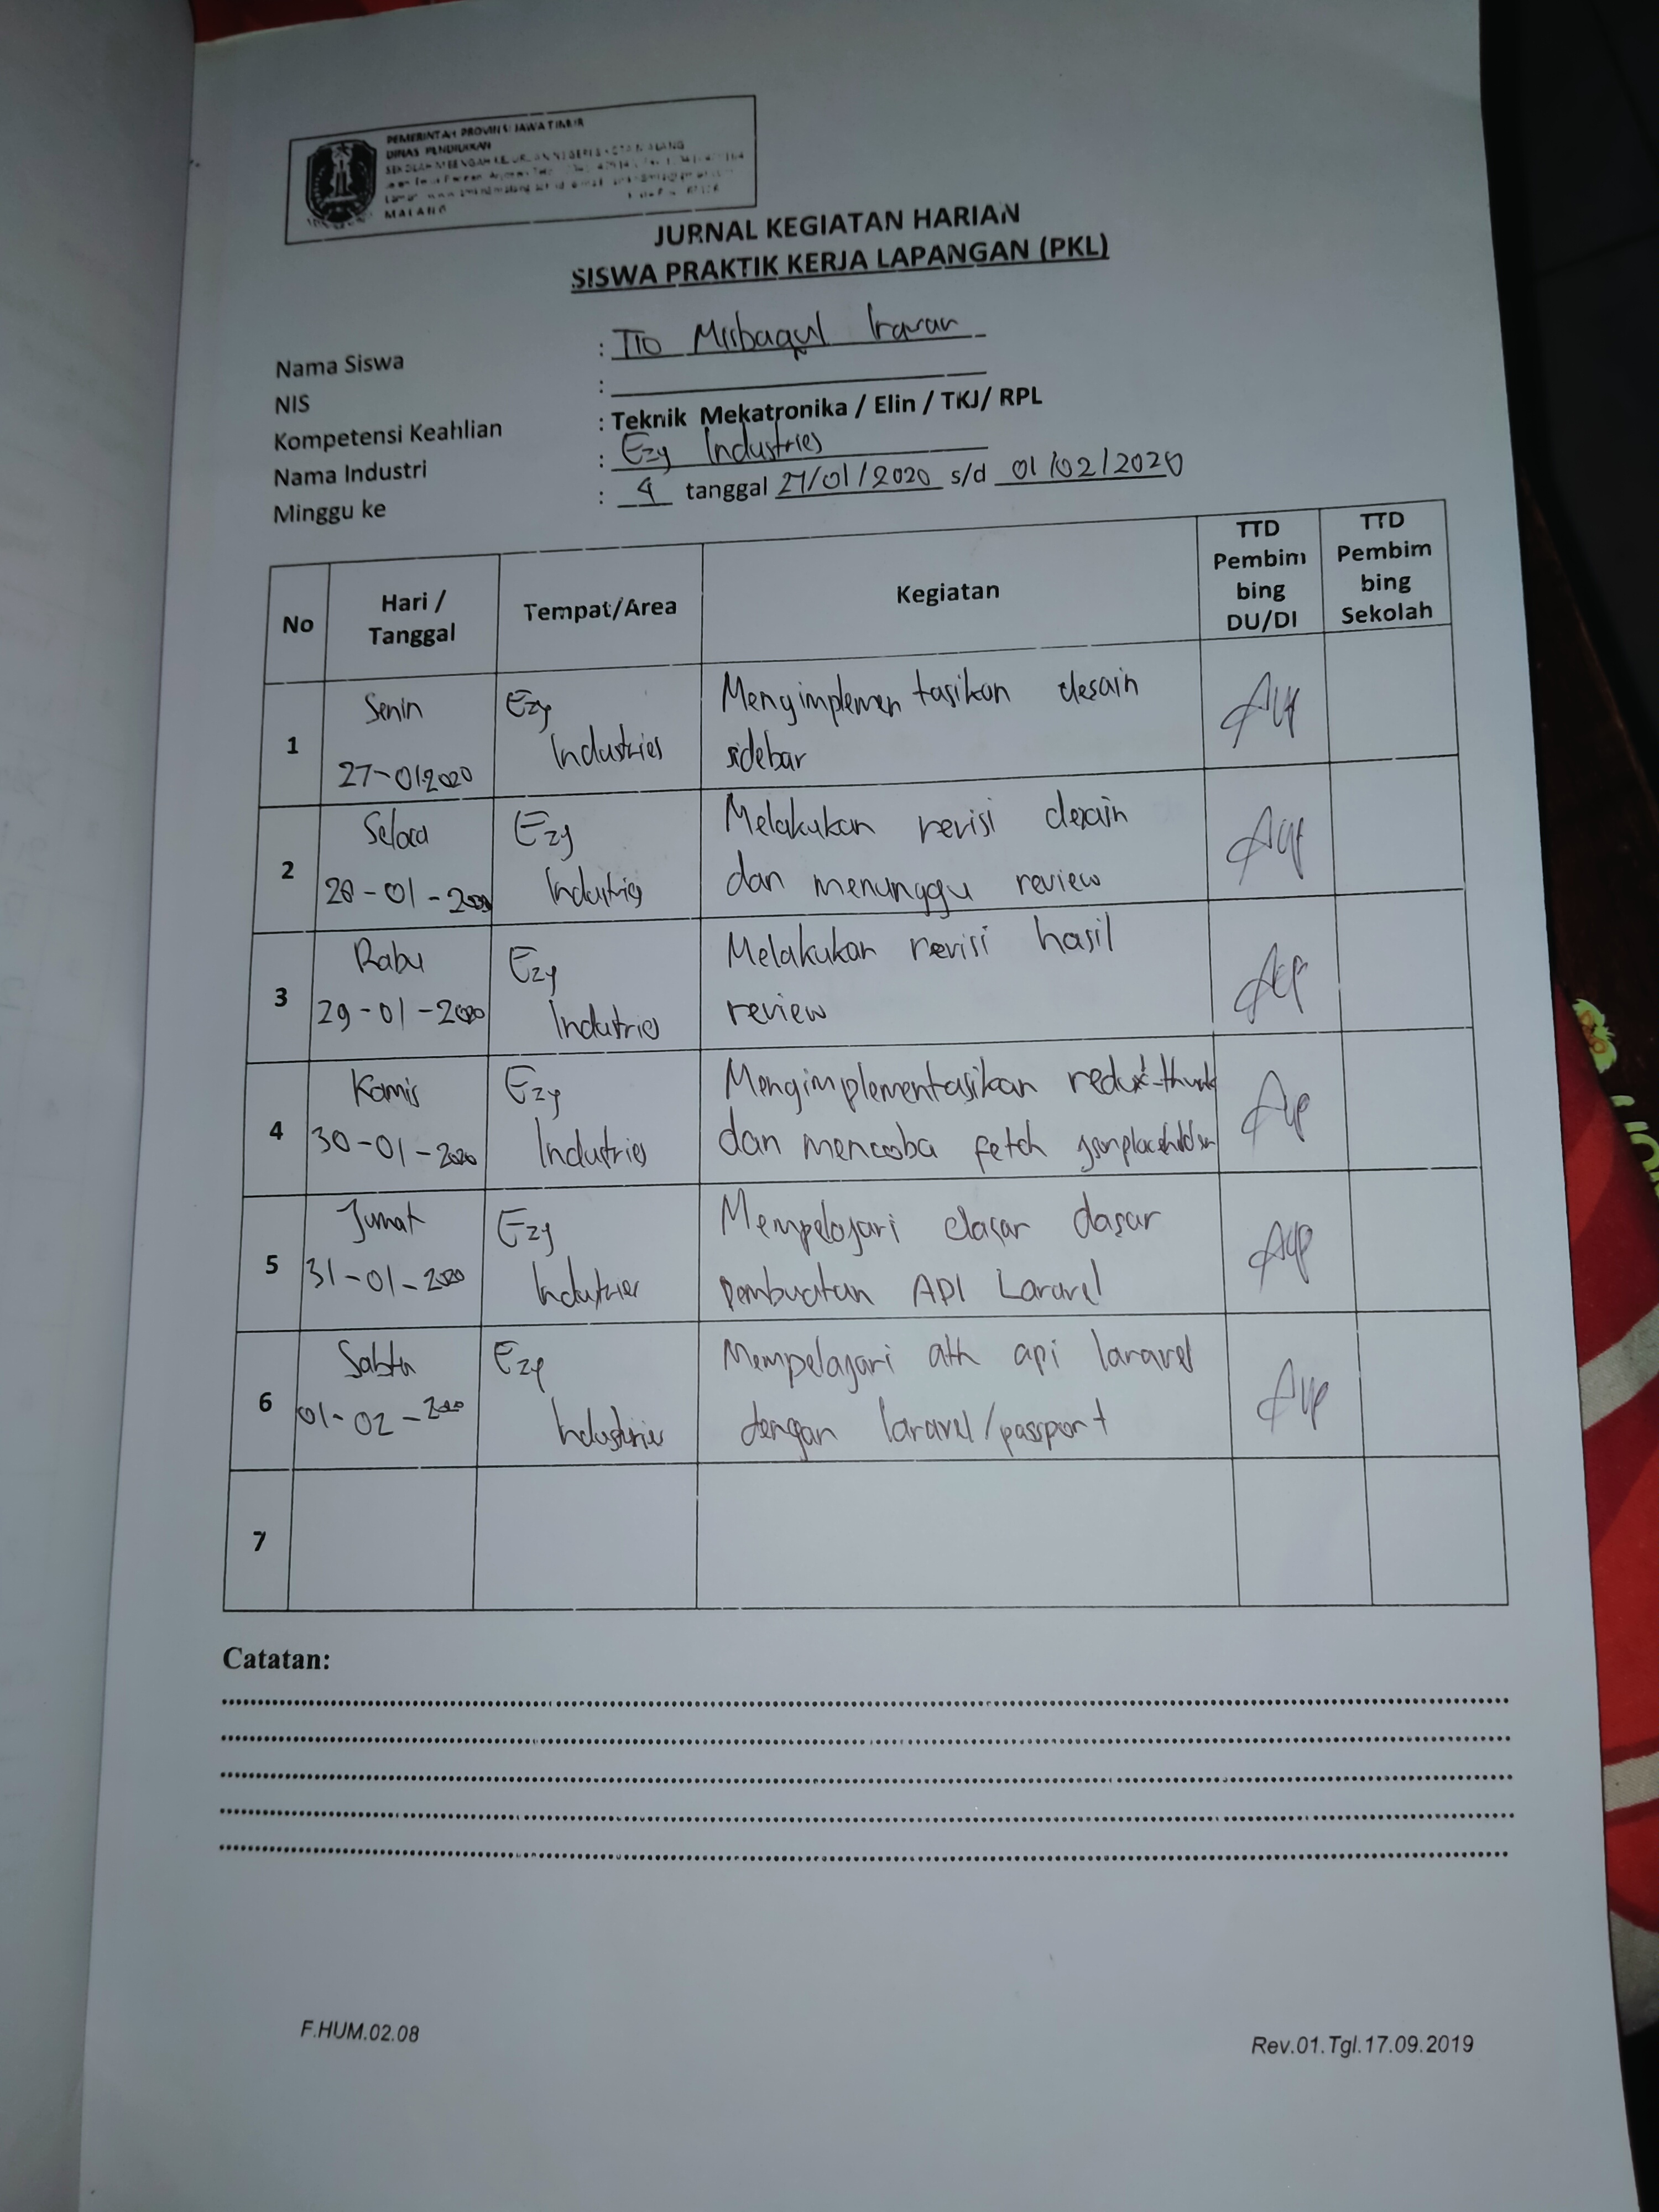 PEMERINTAH PROVINSI JAWA TIMUR
DINAS PENDIDIKAN
MALANG
JURNAL KEGIATAN HARIAN
SISWA PRAKTIK KERJA LAPANGAN (PKL)
Nama Siswa : Tio Misbaqul Irawan
NIS :
Kompetensi Keahlian : Teknik Mekatronika / Elin / TKJ/ RPL
Nama Industri : Ezy Industries
Minggu ke : 4 tanggal 27/01/2020 s/d 01/02/2020
No Hari / Tanggal Tempat/Area Kegiatan TTD Pembim bing DU/DI TTD Pembim bing Sekolah
1 Senin 27-01-2020 Ezy Industries Mengimplementasikan desain
sidebar
2 Selasa 28-01-2020 Ezy Industries Melakukan revisi desain
dan menunggu review
3 Rabu 29-01-2020 Ezy Industries Melakukan revisi hasil
review
4 Kamis 30-01-2020 Ezy Industries Mengimplementasikan redux-thunk
dan mencoba fetch jsonplaceholder
5 Jumat 31-01-2020 Ezy Industries Mempelajari dasar dasar
pembuatan API Laravel
6 Sabtu 01-02-2020 Ezy Industries Mempelajari ath api laravel
dengan laravel/passport
7
Catatan:
F.HUM.02.08
Rev.01.Tgl.17.09.2019